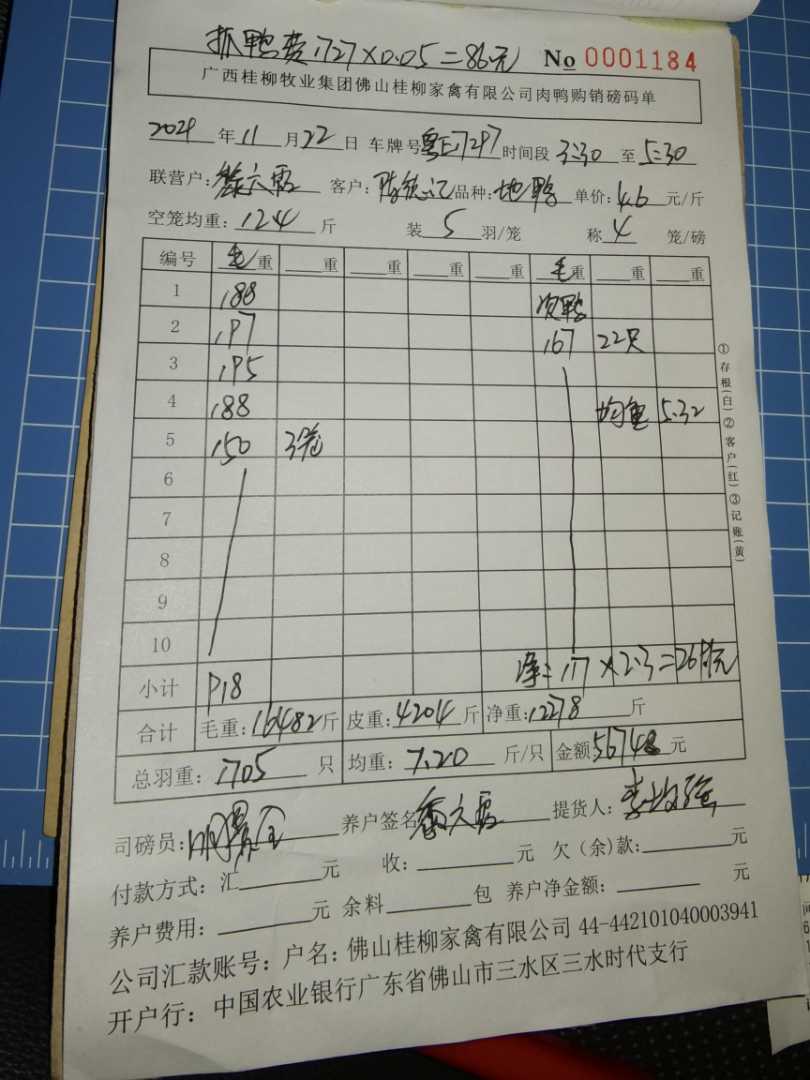 抓鸭费1727×0.05=86元 No 0001184
广西桂柳牧业集团佛山桂柳家禽有限公司肉鸭购销磅码单
2024 年 11 月 22 日 车牌号 时间段 3:30 至 5:30
联营户: 客户: 品种: 单价:4.6 元/斤
空笼均重: 124 斤 装 5 羽/笼 称 4 笼/磅
编号 毛重 重 重 重 重 毛重 重 重
1 188 次鸭
2 197 167 22只
3 195
4 188 均重 5.32
5 150 3笼
6
7
8
9
10
小计 918 净: 117×2.3=269元
合计 毛重:16482斤 皮重:4204斤 净重:12278 斤
总羽重: 1705 只 均重: 7.20 斤/只 金额 56748 元
①存根(白)②客户(红)③记账(黄)
司磅员: 养户签名 提货人:
付款方式:汇 元 收: 元 欠(余)款: 元
养户费用: 元 余料 包 养户净金额: 元
公司汇款账号:户名:佛山桂柳家禽有限公司 44-442101040003941
开户行:中国农业银行广东省佛山市三水区三水时代支行